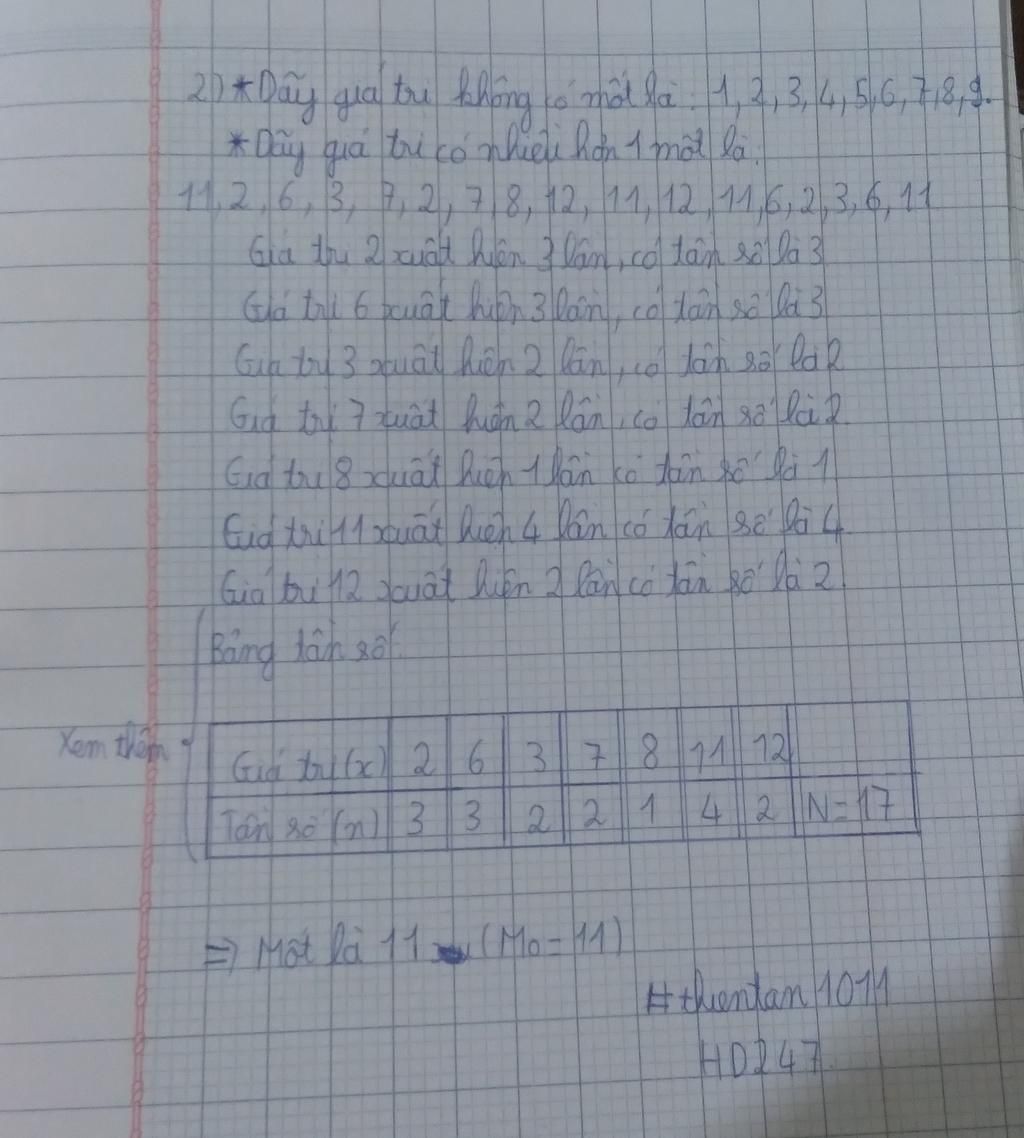 2) *Dãy giá trị không có mốt là: 1, 2, 3, 4, 5, 6, 7, 8, 9.
*Dãy giá trị có nhiều hơn 1 mốt là:
11, 2, 6, 3, 7, 2, 7, 8, 12, 11, 12, 11, 6, 2, 3, 6, 11
Giá trị 2 xuất hiện 3 lần, có tần số là 3
Giá trị 6 xuất hiện 3 lần, có tần số là 3
Giá trị 3 xuất hiện 2 lần, có tần số là 2
Giá trị 7 xuất hiện 2 lần, có tần số là 2
Giá trị 8 xuất hiện 1 lần có tần số là 1
Giá trị 11 xuất hiện 4 lần có tần số là 4
Giá trị 12 xuất hiện 2 lần có tần số là 2
Bảng tần số:
Xem thêm
Giá trị (x) 2 6 3 7 8 11 12
Tần số (n) 3 3 2 2 1 4 2 N=17
=> Mốt là 11 (Mo = 11)
#thientam1011
HD247